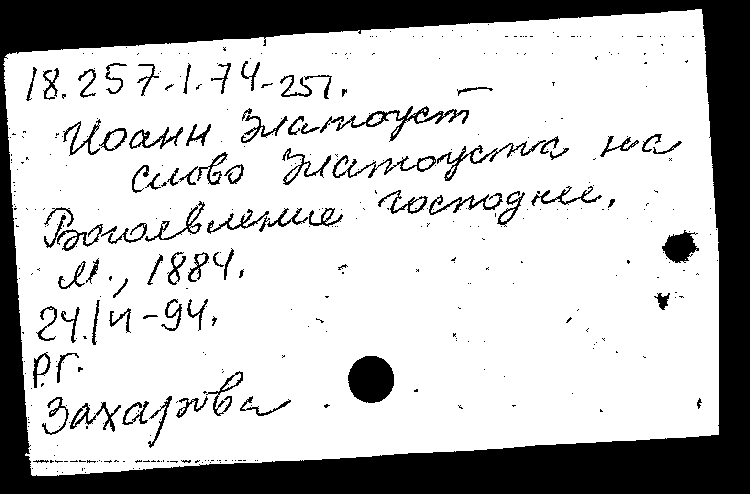 18.257.1.74-251.
Иоанн Златоуст
слово Златоуста на
Богоявление господне.
М., 1884.
24/и-94.
Р.Г.
Захарова